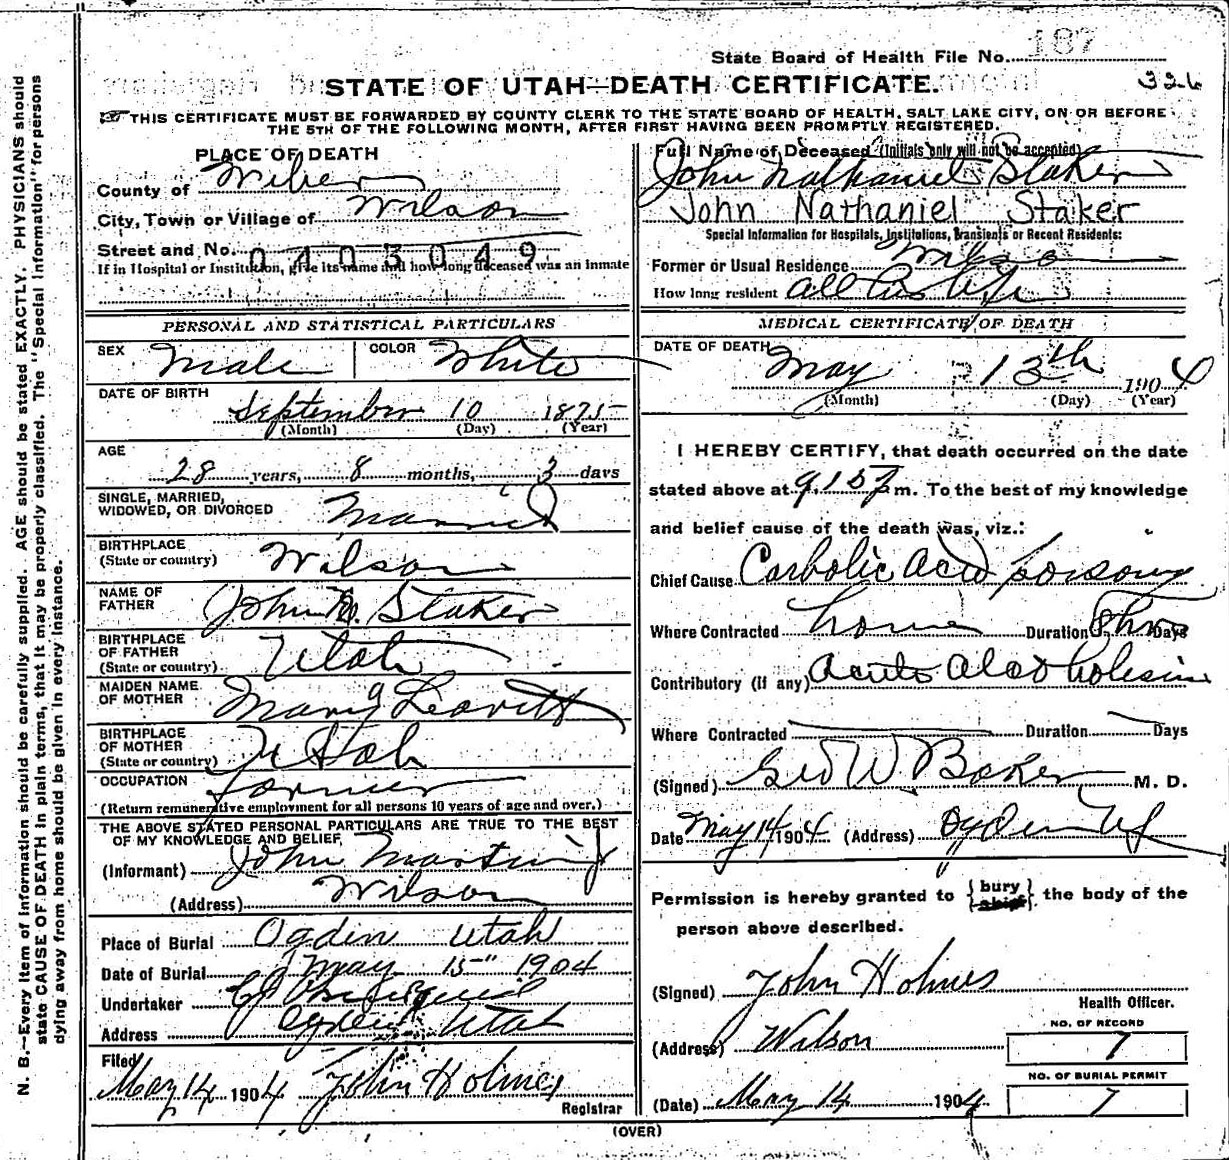 State Board of Health File No. 187
STATE OF UTAH—DEATH CERTIFICATE.
326
THIS CERTIFICATE MUST BE FORWARDED BY COUNTY CLERK TO THE STATE BOARD OF HEALTH, SALT LAKE CITY, ON OR BEFORE
THE 5TH OF THE FOLLOWING MONTH, AFTER FIRST HAVING BEEN PROMPTLY REGISTERED.
N. B.—Every item of information should be carefully supplied. AGE should be stated EXACTLY. PHYSICIANS should
state CAUSE OF DEATH in plain terms, that it may be properly classified. The "Special Information" for persons
dying away from home should be given in every instance.
PLACE OF DEATH
County of Weber
City, Town or Village of Wilson
Street and No. 0403049
If in Hospital or Institution, give its name and how long deceased was an inmate
PERSONAL AND STATISTICAL PARTICULARS
SEX Male COLOR White
DATE OF BIRTH
September 10 1875
(Month) (Day) (Year)
AGE
28 years, 8 months, 3 days
SINGLE, MARRIED,
WIDOWED, OR DIVORCED Married
BIRTHPLACE
(State or country) Wilson
NAME OF
FATHER John N. Staker
BIRTHPLACE
OF FATHER
(State or country) Utah
MAIDEN NAME
OF MOTHER Mary Leavitt
BIRTHPLACE
OF MOTHER
(State or country) Utah
OCCUPATION farmer
(Return remunerative employment for all persons 10 years of age and over.)
THE ABOVE STATED PERSONAL PARTICULARS ARE TRUE TO THE BEST
OF MY KNOWLEDGE AND BELIEF,
(Informant) John
(Address) Wilson
Place of Burial Ogden Utah
Date of Burial May 15" 1904
Undertaker
Address Ogden Utah
Filed
May 14 1904 John Holmes
Registrar
Full Name of Deceased (Initials only will not be accepted)
John Nathaniel Staker
John Nathaniel Staker
Special Information for Hospitals, Institutions, Transients or Recent Residents:
Former or Usual Residence Wilson
How long resident all his life
MEDICAL CERTIFICATE OF DEATH
DATE OF DEATH
May 13th 1904
(Month) (Day) (Year)
I HEREBY CERTIFY, that death occurred on the date
stated above at 9.15 P m. To the best of my knowledge
and belief cause of the death was, viz.:
Chief Cause Carbolic Acid poisoning
Where Contracted home Duration hrs Days
Contributory (if any) Acute Alcoholism
Where Contracted Duration Days
(Signed) Geo W Baker M. D.
Date May 14 1904 (Address) Ogden Ut
Permission is hereby granted to {bury} the body of the
person above described.
(Signed) John Holmes
Health Officer.
(Address) Wilson
NO. OF RECORD
7
NO. OF BURIAL PERMIT
(Date) May 14 1904 7
(OVER)